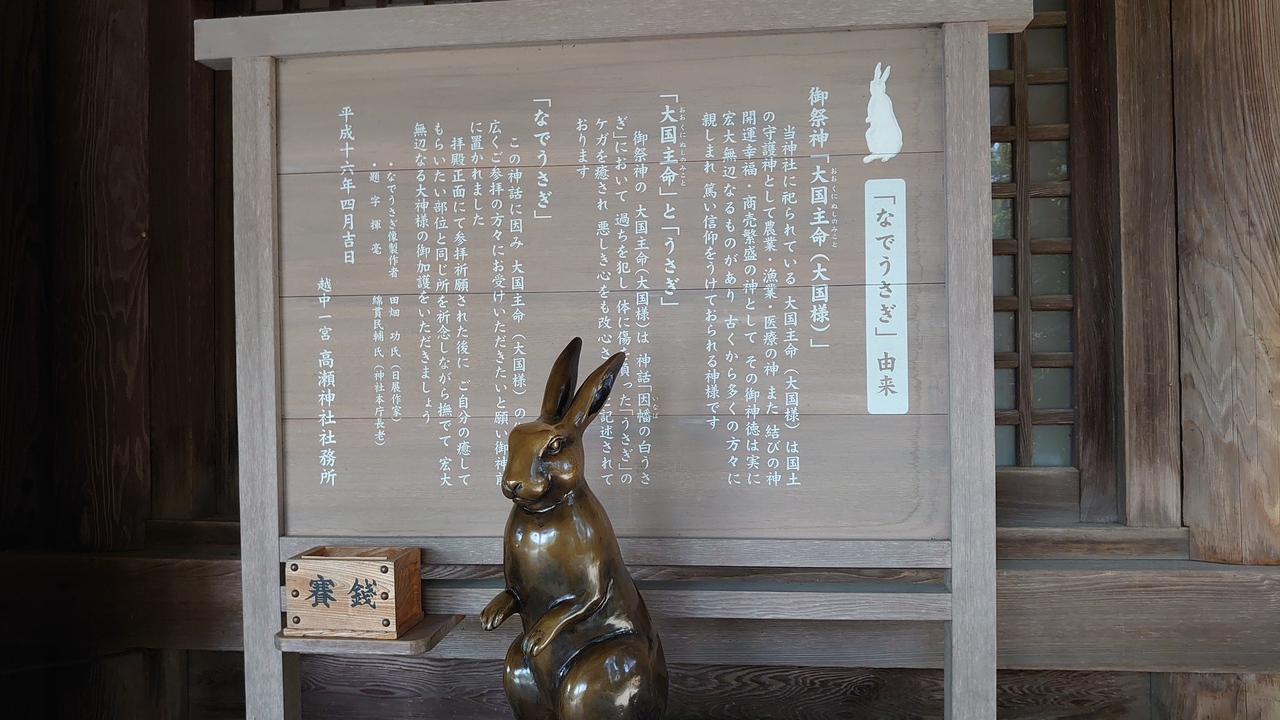 「なでうさぎ」由来
御祭神「大国主命（大国様）」
おおくにぬしのみこと
当神社に祀られている 大国主命（大国様）は国土
の守護神として農業・漁業・医療の神 また 結びの神
開運幸福・商売繁盛の神として その御神徳は実に
宏大無辺なるものがあり 古くから多くの方々に
親しまれ 篤い信仰をうけておられる神様です
「大国主命」と「うさぎ」
おおくにぬしのみこと
御祭神の 大国主命（大国様）は 神話「因幡の白うさ
いなば
ぎ」において 過ちを犯し 体に傷を負った「うさぎ」の
ケガを癒され 悪しき心をも改心さ 記述されて
おります
「なでうさぎ」
この神話に因み 大国主命（大国様）の
広くご参拝の方々にお受けいただきたいと願い御神前
に置かれました
拝殿正面にて参拝祈願された後に ご自分の癒して
もらいたい部位と同じ所を祈念しながら撫でて 宏大
無辺なる大神様の御加護をいただきましょう
・なでうさぎ像製作者 田畑 功 氏（日展作家）
・題字揮毫 綿貫民輔 氏（神社本庁長老）
平成十六年四月吉日
越中一宮 高瀬神社社務所
賽銭